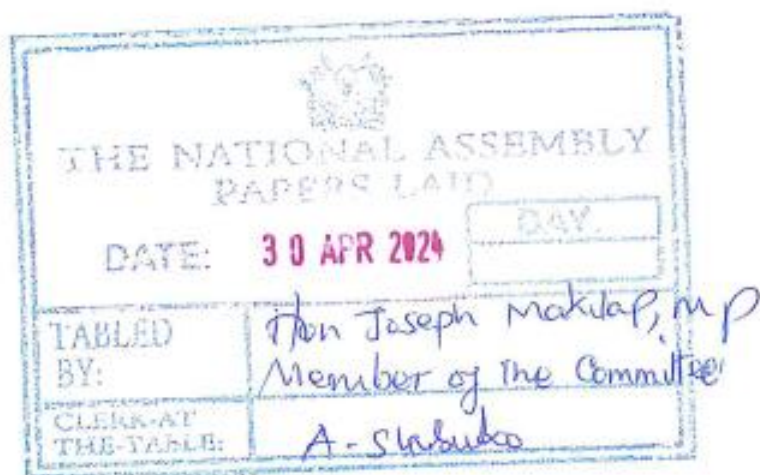 THE NATIONAL ASSEMBLY
PAPERS LAID
DATE: 30 APR 2024
DAY.
TABLED BY:
Hon Joseph Makilap, MP
Member of the Committee
CLERK-AT THE-TABLE:
A-